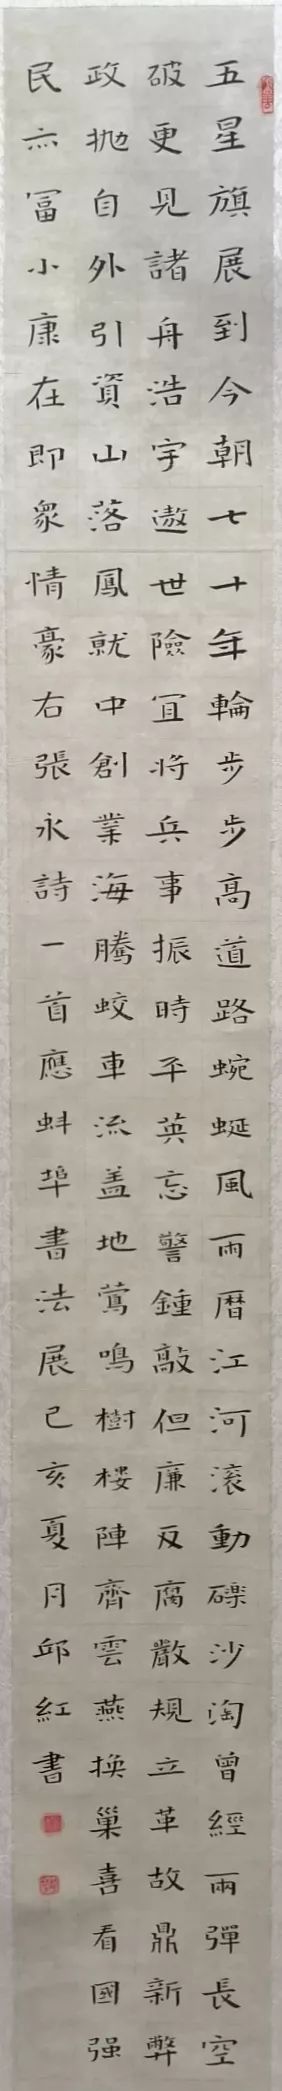 五星旗展到今朝七十年輪步步高道路蜿蜒風雨曆江河滚動礫沙淘曾經兩彈長空
破更見諸舟浩宇遨世險宜将兵事振時平英忘警鍾敲但廉反腐嚴規立革故鼎新弊
政抛自外引資山落鳳就中創業海騰蛟車流盖地鶯鳴樹楼陣齊雲燕换巢喜看國强
民亦冨小康在即衆情豪右張永詩一首應蚌埠書法展己亥夏月邱紅書